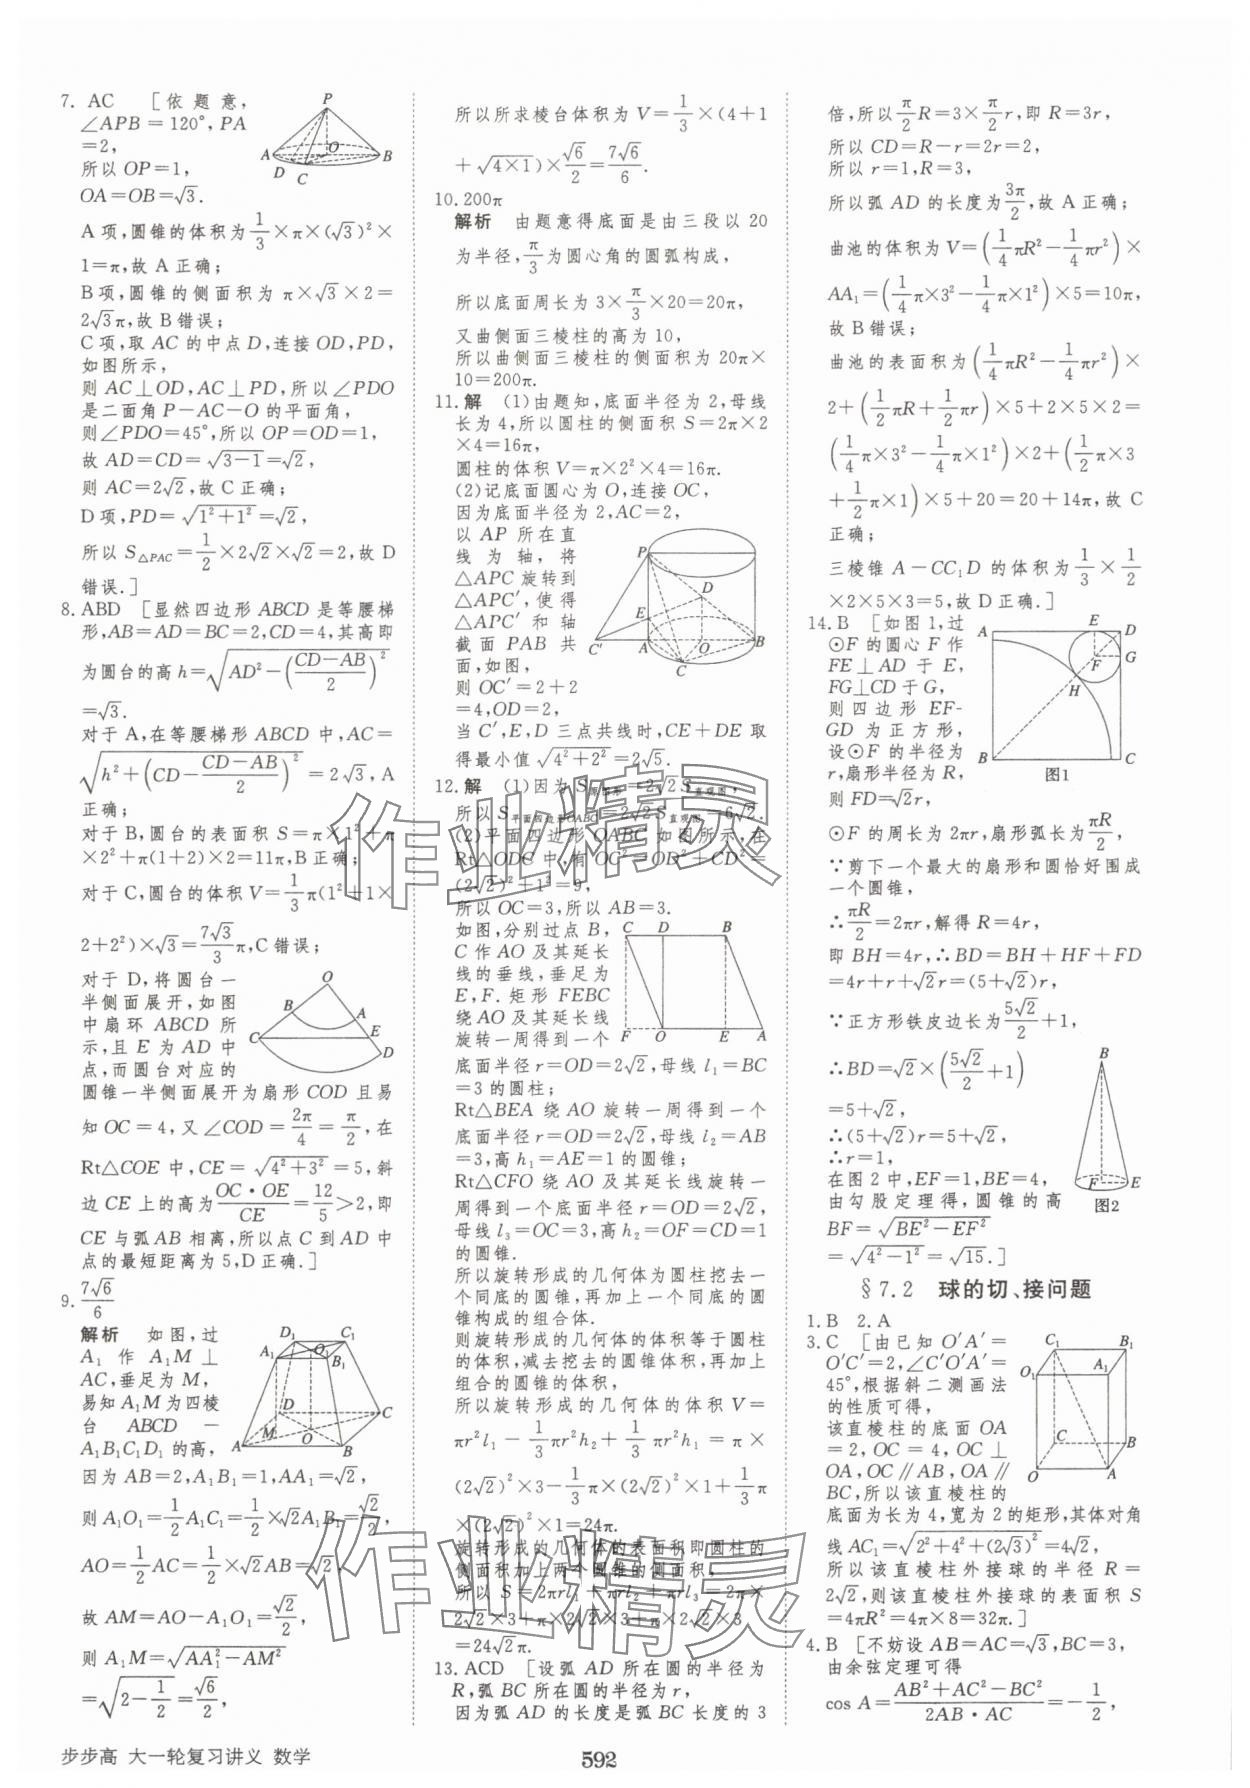 7. AC [依题意,
∠APB=120°,PA
=2,
所以 OP=1,
OA=OB=√3.
A 项,圆锥的体积为 1/3×π×(√3)²×
1=π,故 A 正确;
B 项,圆锥的侧面积为 π×√3×2=
2√3π,故 B 错误;
C 项,取 AC 的中点 D,连接 OD,PD,
如图所示,
则 AC⊥OD,AC⊥PD,所以∠PDO
是二面角 P-AC-O 的平面角,
则∠PDO=45°,所以 OP=OD=1,
故 AD=CD=√(3-1)=√2,
则 AC=2√2,故 C 正确;
D 项,PD=√(1²+1²)=√2,
所以 S△PAC=1/2×2√2×√2=2,故 D
错误.]
8. ABD [显然四边形 ABCD 是等腰梯
形,AB=AD=BC=2,CD=4,其高即
为圆台的高 h=√(AD²-((CD-AB)/2)²)
=√3.
对于 A,在等腰梯形 ABCD 中,AC=
√(h²+(CD-(CD-AB)/2)²)=2√3,A
正确;
对于 B,圆台的表面积 S=π×1²+π
×2²+π(1+2)×2=11π,B 正确;
对于 C,圆台的体积 V=1/3π(1²+1×
2+2²)×√3=7√3/3π,C 错误;
对于 D,将圆台一
半侧面展开,如图
中扇环 ABCD 所
示,且 E 为 AD 中
点,而圆台对应的
圆锥一半侧面展开为扇形 COD 且易
知 OC=4,又∠COD=2π/4=π/2,在
Rt△COE 中,CE=√(4²+3²)=5,斜
边 CE 上的高为 OC·OE/CE=12/5>2,即
CE 与弧 AB 相离,所以点 C 到 AD 中
点的最短距离为 5,D 正确.]
9. 7√6/6
解析 如图,过
A₁ 作 A₁M⊥
AC,垂足为 M,
易知 A₁M 为四棱
台 ABCD-
A₁B₁C₁D₁ 的高,
因为 AB=2,A₁B₁=1,AA₁=√2,
则 A₁O₁=1/2A₁C₁=1/2×√2A₁B₁=√2/2,
AO=1/2AC=1/2×√2AB=√2,
故 AM=AO-A₁O₁=√2/2,
则 A₁M=√(AA₁²-AM²)
=√(2-1/2)=√6/2,
所以所求棱台体积为 V=1/3×(4+1
+√(4×1))×√6/2=7√6/6.
10. 200π
解析 由题意得底面是由三段以 20
为半径,π/3为圆心角的圆弧构成,
所以底面周长为 3×π/3×20=20π,
又曲侧面三棱柱的高为 10,
所以曲侧面三棱柱的侧面积为 20π×
10=200π.
11. 解 (1)由题知,底面半径为 2,母线
长为 4,所以圆柱的侧面积 S=2π×2
×4=16π,
圆柱的体积 V=π×2²×4=16π.
(2)记底面圆心为 O,连接 OC,
因为底面半径为 2,AC=2,
以 AP 所在直
线为轴,将
△APC 旋转到
△APC′,使得
△APC′和轴
截面 PAB 共
面,如图,
则 OC′=2+2
=4,OD=2,
当 C′,E,D 三点共线时,CE+DE 取
得最小值 √(4²+2²)=2√5.
12. 解 (1)因为 S原图形=2√2S直观图,
所以 S平面四边形OABC=2√2S直观图=6√2.
(2)平面四边形 OABC 如图所示,在
Rt△ODC 中,有 OC²=OD²+CD²=
(2√2)²+1²=9,
所以 OC=3,所以 AB=3.
如图,分别过点 B,
C 作 AO 及其延长
线的垂线,垂足为
E,F.矩形 FEBC
绕 AO 及其延长线
旋转一周得到一个
底面半径 r=OD=2√2,母线 l₁=BC
=3 的圆柱;
Rt△BEA 绕 AO 旋转一周得到一个
底面半径 r=OD=2√2,母线 l₂=AB
=3,高 h₁=AE=1 的圆锥;
Rt△CFO 绕 AO 及其延长线旋转一
周得到一个底面半径 r=OD=2√2,
母线 l₃=OC=3,高 h₂=OF=CD=1
的圆锥.
所以旋转形成的几何体为圆柱挖去一
个同底的圆锥,再加上一个同底的圆
锥构成的组合体.
则旋转形成的几何体的体积等于圆柱
的体积,减去挖去的圆锥体积,再加上
组合的圆锥的体积,
所以旋转形成的几何体的体积 V=
πr²l₁-1/3πr²h₂+1/3πr²h₁=π×
(2√2)²×3-1/3π×(2√2)²×1+1/3π
×(2√2)²×1=24π.
旋转形成的几何体的表面积即圆柱的
侧面积加上两个圆锥的侧面积,
所以 S=2πrl₁+πrl₂+πrl₃=2π×
2√2×3+π×2√2×3+π×2√2×3
=24√2π.
13. ACD [设弧 AD 所在圆的半径为
R,弧 BC 所在圆的半径为 r,
因为弧 AD 的长度是弧 BC 长度的 3
倍,所以π/2R=3×π/2r,即 R=3r,
所以 CD=R-r=2r=2,
所以 r=1,R=3,
所以弧 AD 的长度为3π/2,故 A 正确;
曲池的体积为 V=(1/4πR²-1/4πr²)×
AA₁=(1/4π×3²-1/4π×1²)×5=10π,
故 B 错误;
曲池的表面积为(1/4πR²-1/4πr²)×
2+(1/2πR+1/2πr)×5+2×5×2=
(1/4π×3²-1/4π×1²)×2+(1/2π×3
+1/2π×1)×5+20=20+14π,故 C
正确;
三棱锥 A-CC₁D 的体积为1/3×1/2
×2×5×3=5,故 D 正确.]
14. B [如图 1,过
⊙F 的圆心 F 作
FE⊥AD 于 E,
FG⊥CD 于 G,
则四边形 EF-
GD 为正方形,
设⊙F 的半径为
r,扇形半径为 R,
则 FD=√2r,
⊙F 的周长为 2πr,扇形弧长为πR/2,
∵剪下一个最大的扇形和圆恰好围成
一个圆锥,
∴πR/2=2πr,解得 R=4r,
即 BH=4r,∴BD=BH+HF+FD
=4r+r+√2r=(5+√2)r,
∵正方形铁皮边长为5√2/2+1,
∴BD=√2×(5√2/2+1)
=5+√2,
∴(5+√2)r=5+√2,
∴r=1,
在图 2 中,EF=1,BE=4,
由勾股定理得,圆锥的高
BF=√(BE²-EF²)
=√(4²-1²)=√15.]
图1
图2
§7.2 球的切、接问题
1. B 2. A
3. C [由已知 O′A′=
O′C′=2,∠C′O′A′=
45°,根据斜二测画法
的性质可得,
该直棱柱的底面 OA
=2,OC=4,OC⊥
OA,OC∥AB,OA∥
BC,所以该直棱柱的
底面为长为 4,宽为 2 的矩形,其体对角
线 AC₁=√(2²+4²+(2√3)²)=4√2,
所以该直棱柱外接球的半径 R=
2√2,则该直棱柱外接球的表面积 S
=4πR²=4π×8=32π.]
4. B [不妨设 AB=AC=√3,BC=3,
由余弦定理可得
cos A=(AB²+AC²-BC²)/(2AB·AC)=-1/2,
步步高 大一轮复习讲义 数学
592
作业精灵
作业精灵